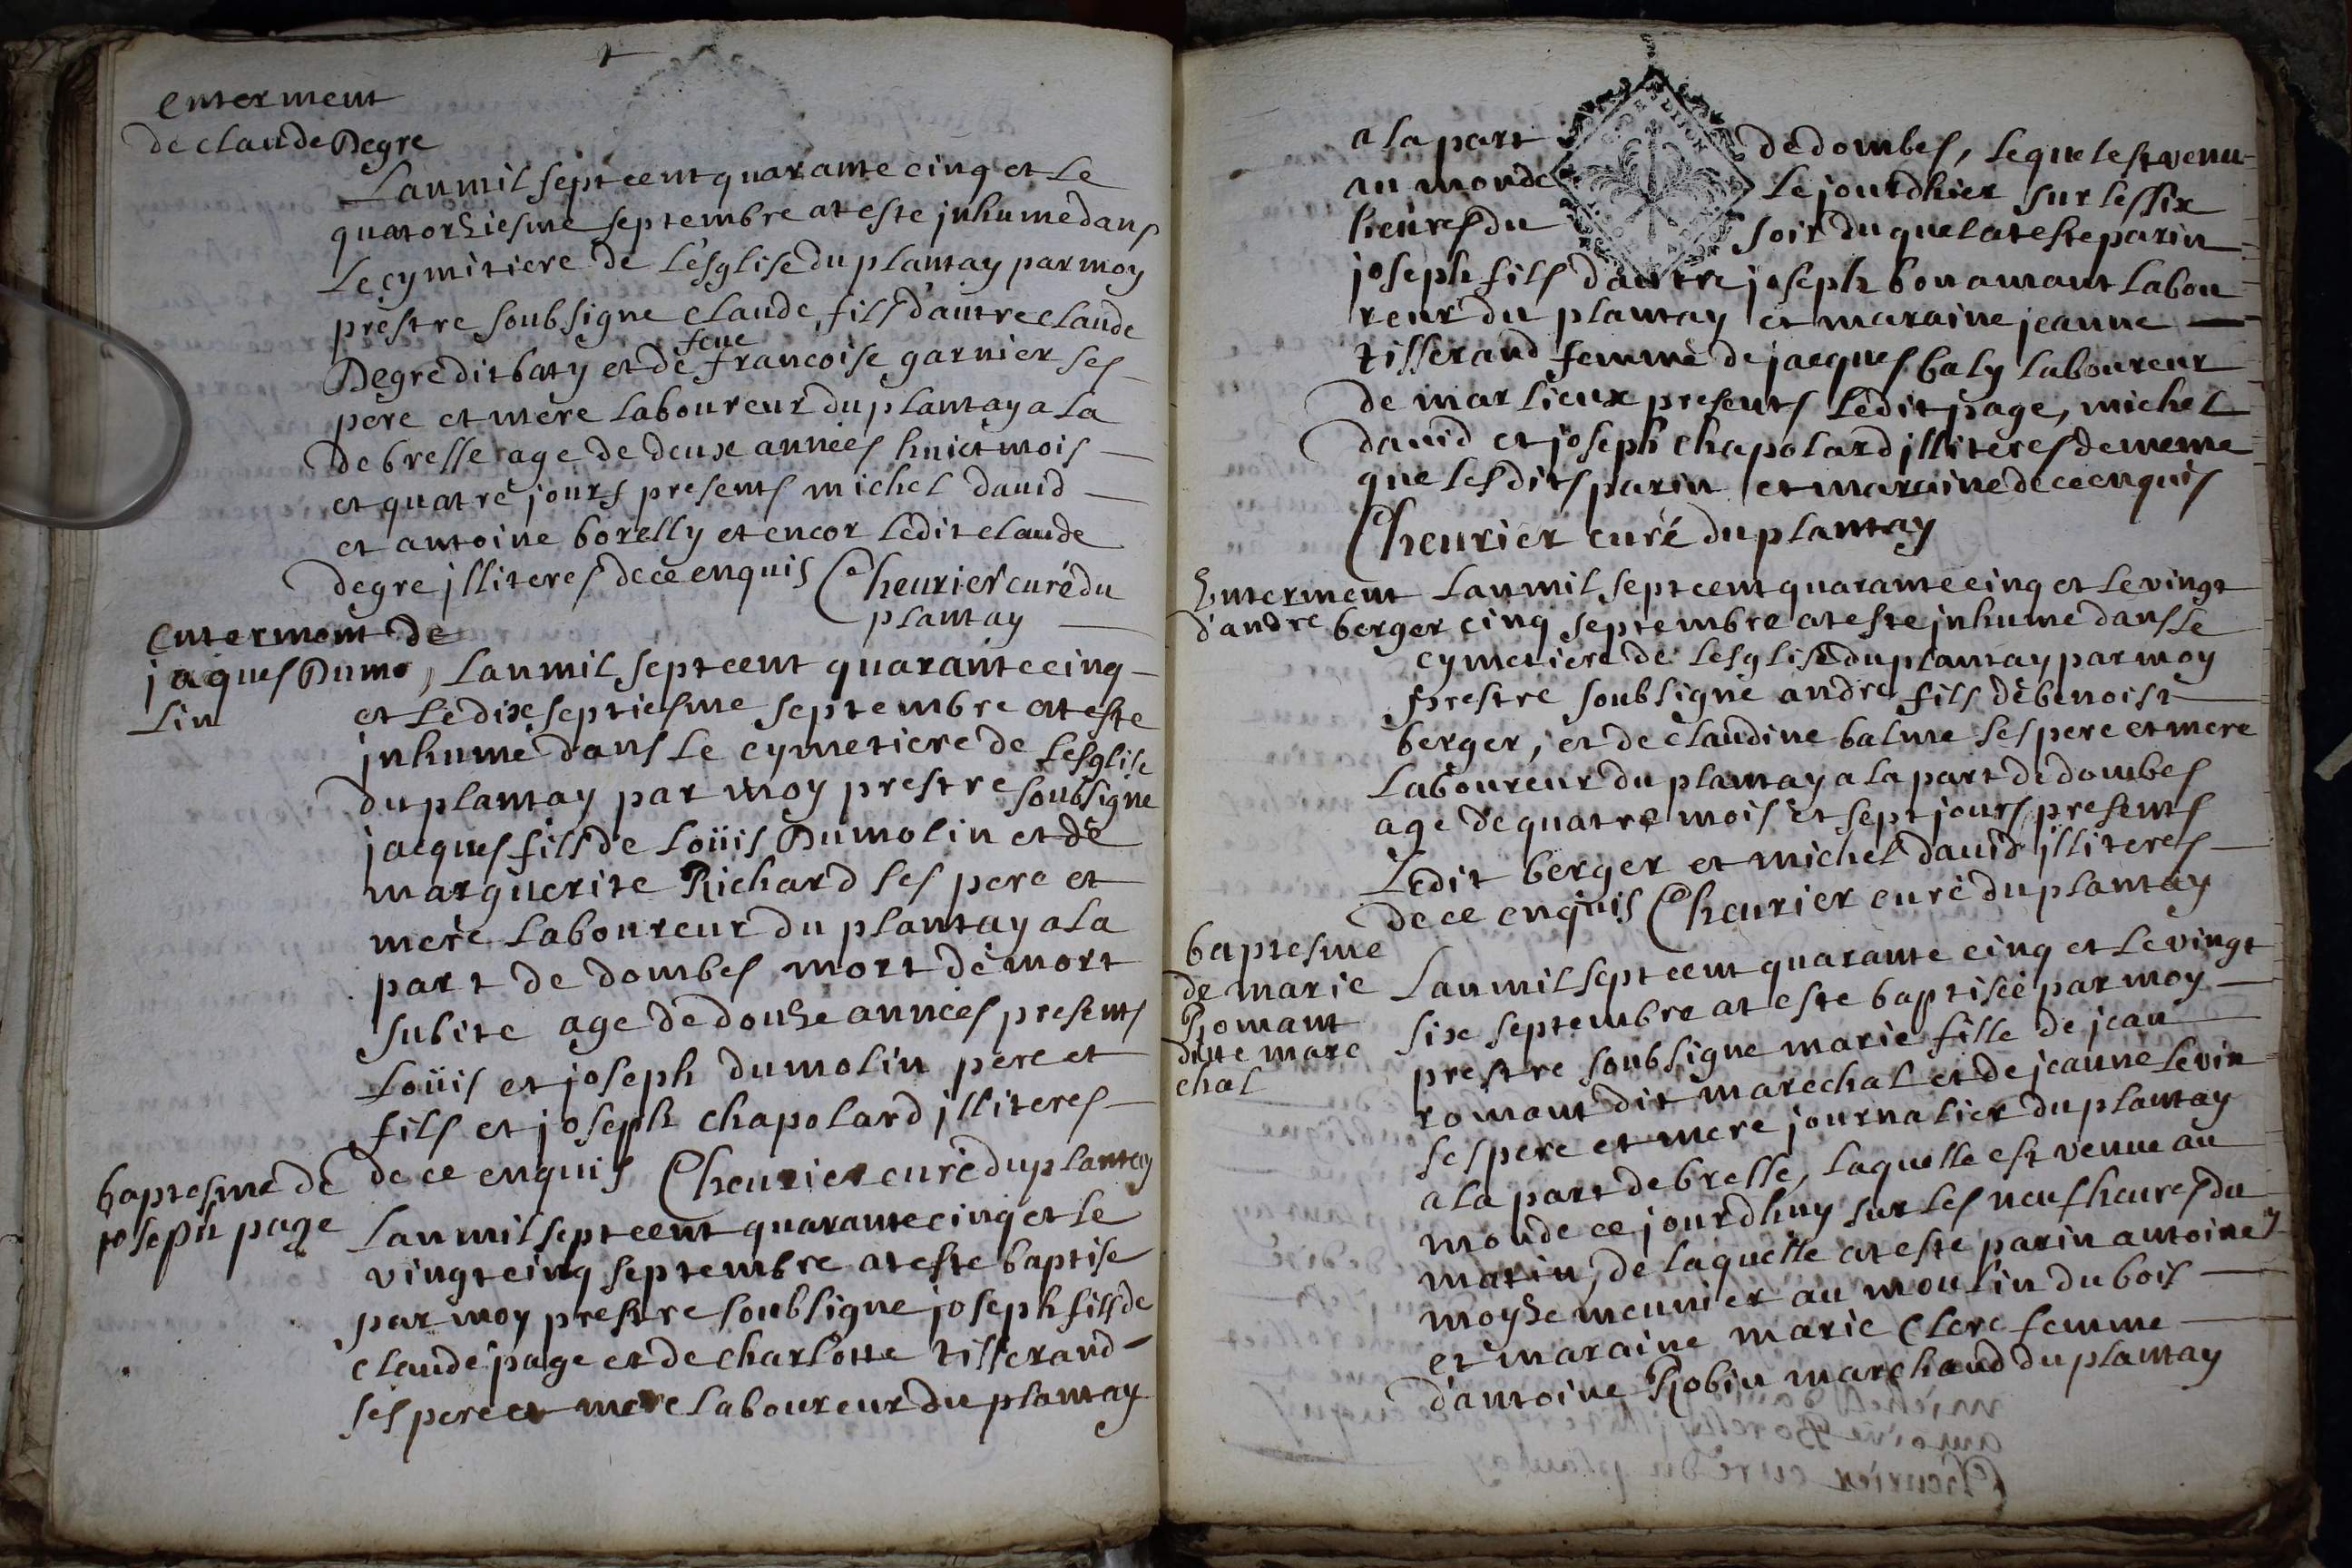 enterment
de claude Degre
Lan mil sept cent quarante cinq et le
quatorziesme septembre at este jnhumé dans
Le cymitiere de Lésglise du plantay par moy
prestre soubsigne claude, fils d'autre claude
feue
Degre dit baty et de francoise garnier ses
pere et mere laboureur du plantay a la
de bresse age de deux années huict mois
et quatre jours presents michel david
et antoine borelly et encor ledit claude
degre jlliteres de ce enquis Cheurier curé du
plantay
enterment de
jaques Dumo
Lin
, Lan mil sept cent quarante cinq
et Le dix septiesme septembre at este
jnhumé dans Le cymetiere de Lesglise
du plantay par moy prestre soubsigne
jacques fils de Loüis Dumolin et de
marguerite Richard ses pere et
mere Laboureur du plantay a la
part de dombes mort de mort
subite age de douze années presents
Loüis et joseph dumolin pere et
fils et joseph chapolard jlliteres
de ce enquis Cheurier curé du plantay
baptesme de
joseph page
Lan mil sept cent quarante cinq et le
vingt cinq septembre at este baptise
par moy prestre soubsigne joseph fils de
claude page et de charlotte tisserand
ses pere et mere laboureur du plantay
a la part de dombes, lequel est venu
au monde le jourdhier sur les six
heures du soir duquel at este parin
joseph fils dautre joseph bonamant labou
reur du plantay et maraine jeanne
tisserand femme de jacques baly laboureur
de marlieux presents ledit page, michel
david et joseph chapolard jlliteres de meme
que lesdits parin et maraine de ce enquis
Cheurier curé du plantay
Enterment
d'andre berger
Lan mil sept cent quarante cinq et le vingt
cinq septembre at este jnhume dans le
cymetiere de lesglise du plantay par moy
prestre soubsigne andre fils de benoist
berger, et de claudine balme ses pere et mere
Laboureur du plantay a la part de dombes
age de quatre mois et sept jours presents
Ledit berger et michel david jlliteres
de ce enquis Cheurier curé du plantay
baptesme
de marie
Romant
ditte mare
chal
Lan mil sept cent quarante cinq et le vingt
six septembre at este baptisée par moy
prestre soubsigne marie fille de jean
romant dit marechal et de jeanne levin
ses pere et mere journalier du plantay
a la part de bresse, laquelle est venue au
monde ce jourdhuy sur les neuf heures du
matin, de laquelle at este parin antoine
moyze meunier au moulin du bois
et maraine marie Clerc femme
d'antoine Robin marchand du plantay